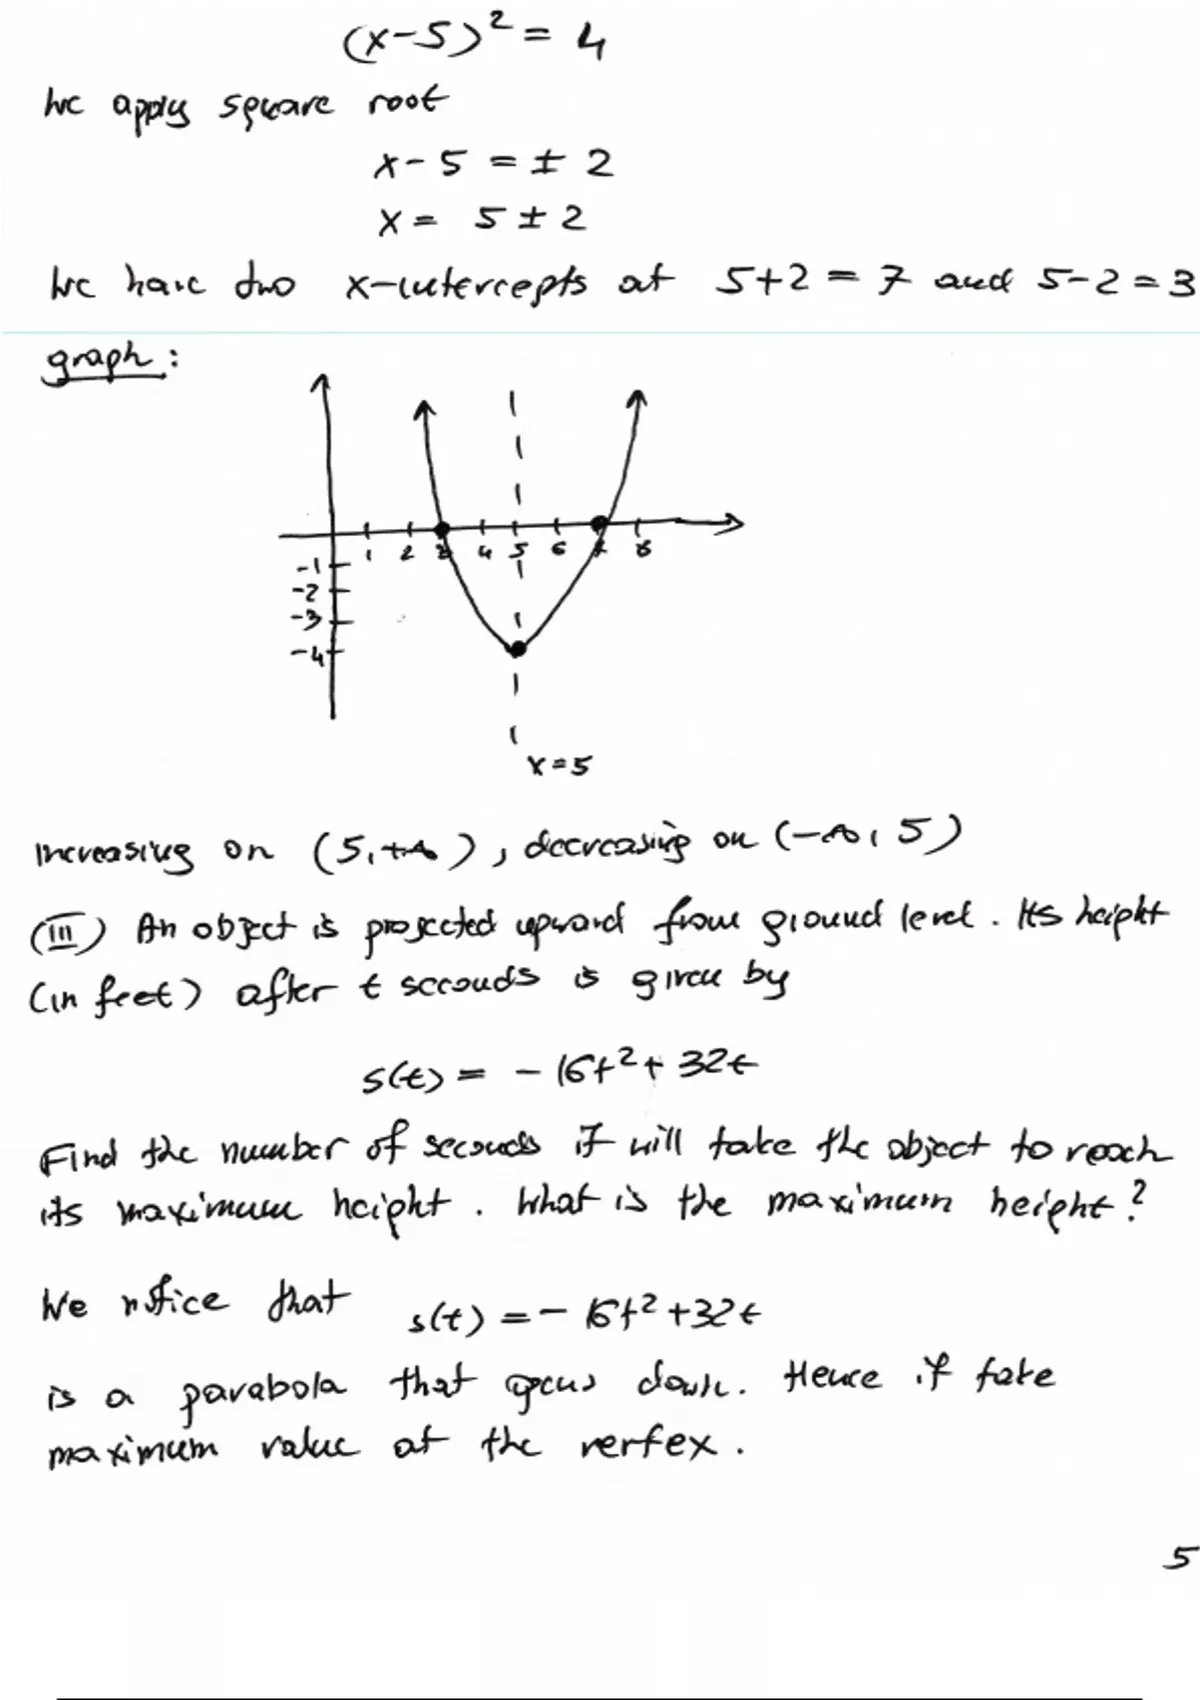 (x-5)² = 4
We apply square root
x-5 = ± 2
x = 5 ± 2
We have two x-intercepts at 5+2 = 7 and 5-2 = 3
graph:
1 2 3 4 5 6 7 8
-1
-2
-3
-4
x=5
Increasing on (5,+∞), decreasing on (-∞, 5)
(III) An object is projected upward from ground level. Its height
(in feet) after t seconds is given by
s(t) = -16t²+ 32t
Find the number of seconds it will take the object to reach
its maximum height. What is the maximum height?
We notice that s(t) = -16t²+32t
is a parabola that opens down. Hence it take
maximum value at the vertex.
5